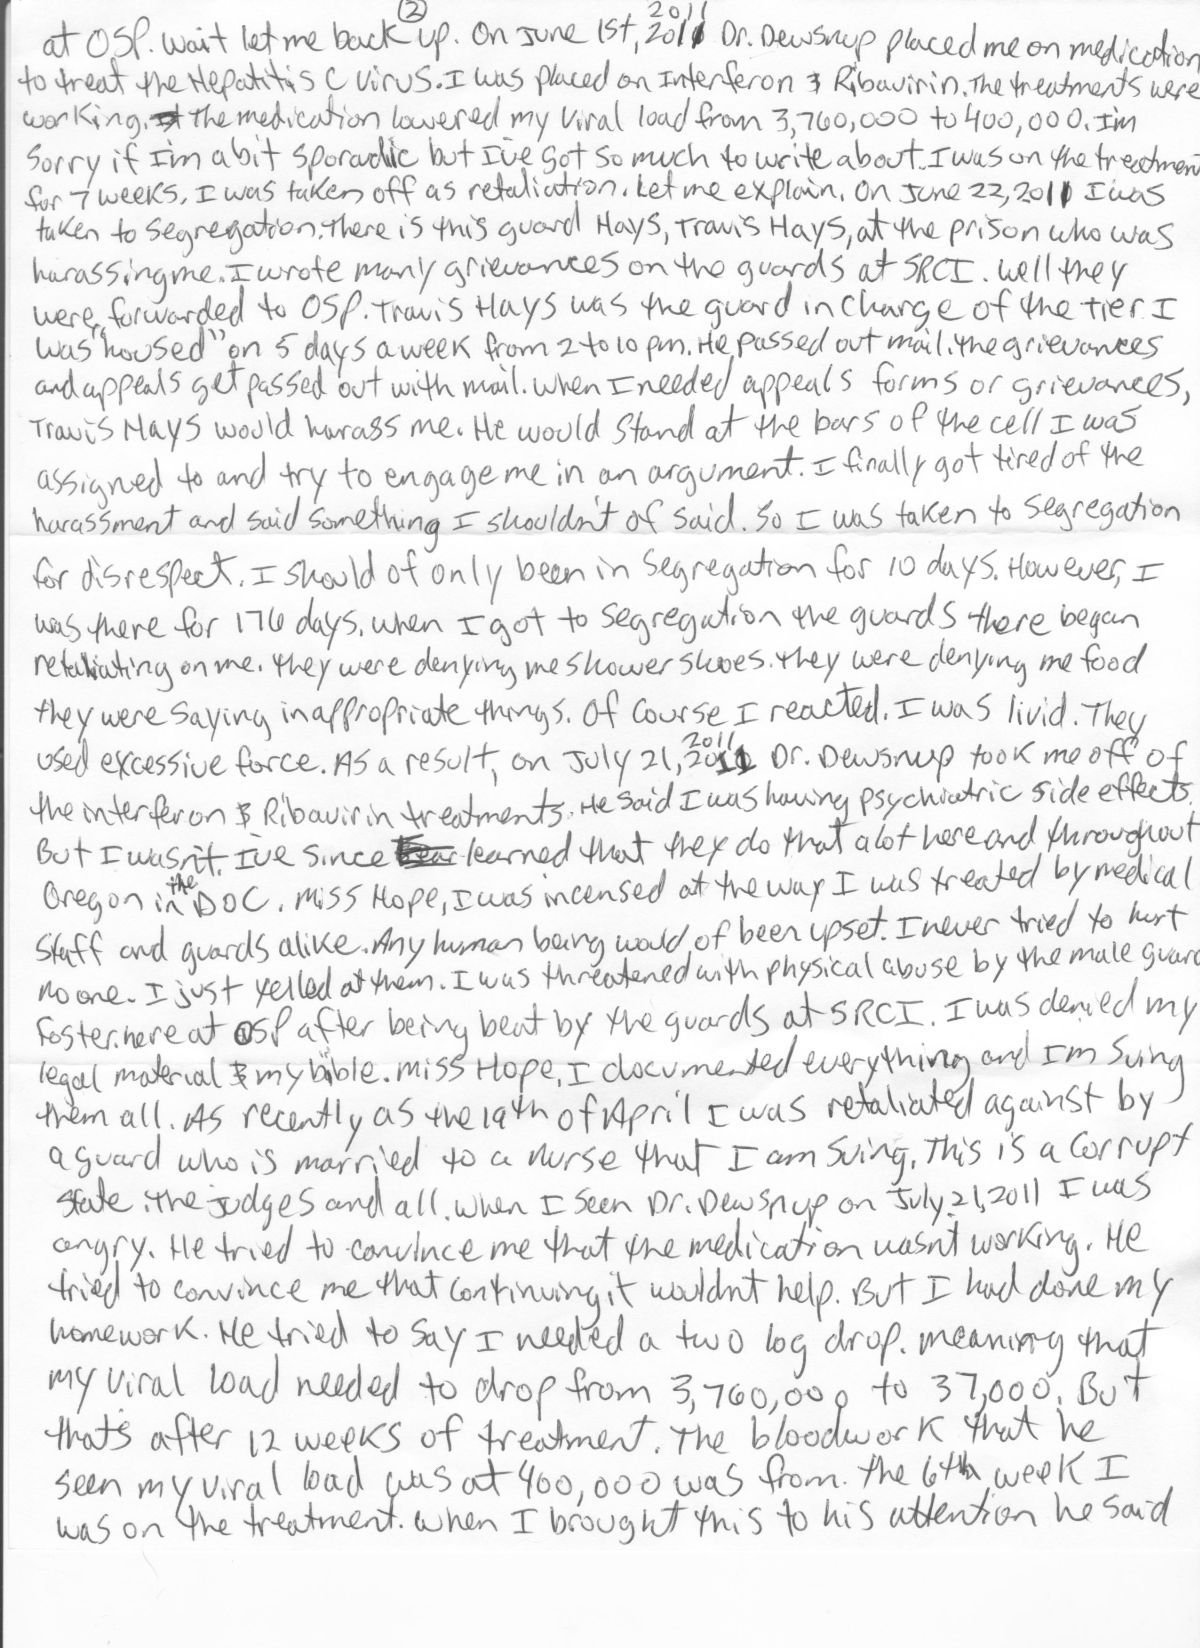 ②
at OSP. Wait let me back up. On June 1st, 2011 2011 Dr. Dewsnup placed me on medication
to treat the Hepatitis C virus. I was placed on Interferon & Ribavirin. The treatments were
working. The medication lowered my viral load from 3,760,000 to 400,000. I'm
sorry if I'm a bit sporadic but I've got so much to write about. I was on the treatment
for 7 weeks. I was taken off as retaliation. Let me explain. On June 22, 2011 I was
taken to segregation. There is this guard Hays, Travis Hays, at the prison who was
harassing me. I wrote many grievances on the guards at SRCI. Well they
were forwarded to OSP. Travis Hays was the guard in charge of the tier I
was "housed" on 5 days a week from 2 to 10 pm. He passed out mail. The grievances
and appeals get passed out with mail. When I needed appeals forms or grievances,
Travis Hays would harass me. He would stand at the bars of the cell I was
assigned to and try to engage me in an argument. I finally got tired of the
harassment and said something I shouldn't of said. So I was taken to segregation
for disrespect. I should of only been in segregation for 10 days. However, I
was there for 176 days. When I got to segregation the guards there began
retaliating on me. They were denying me shower shoes. They were denying me food
they were saying inappropriate things. Of course I reacted. I was livid. They
used excessive force. As a result, on July 21, 2011 2011 Dr. Dewsnup took me off of
the interferon & Ribavirin treatments. He said I was having psychiatric side effects.
But I wasn't. I've since learned that they do that a lot here and throughout
Oregon in the DOC. Miss Hope, I was incensed at the way I was treated by medical
staff and guards alike. Any human being would of been upset. I never tried to hurt
no one. I just yelled at them. I was threatened with physical abuse by the male guard
Foster here at OSP after being beat by the guards at SRCI. I was denied my
legal material & my bible. Miss Hope, I documented everything and I'm suing
them all. As recently as the 19th of April I was retaliated against by
a guard who is married to a nurse that I am suing. This is a corrupt
state. The judges and all. When I seen Dr. Dewsnup on July 21, 2011 I was
angry. He tried to convince me that the medication wasn't working. He
tried to convince me that continuing it wouldn't help. But I had done my
homework. He tried to say I needed a two log drop. Meaning that
my viral load needed to drop from 3,760,000 to 37,000. But
that's after 12 weeks of treatment. The bloodwork that he
seen my viral load was at 400,000 was from the 6th week I
was on the treatment. When I brought this to his attention he said